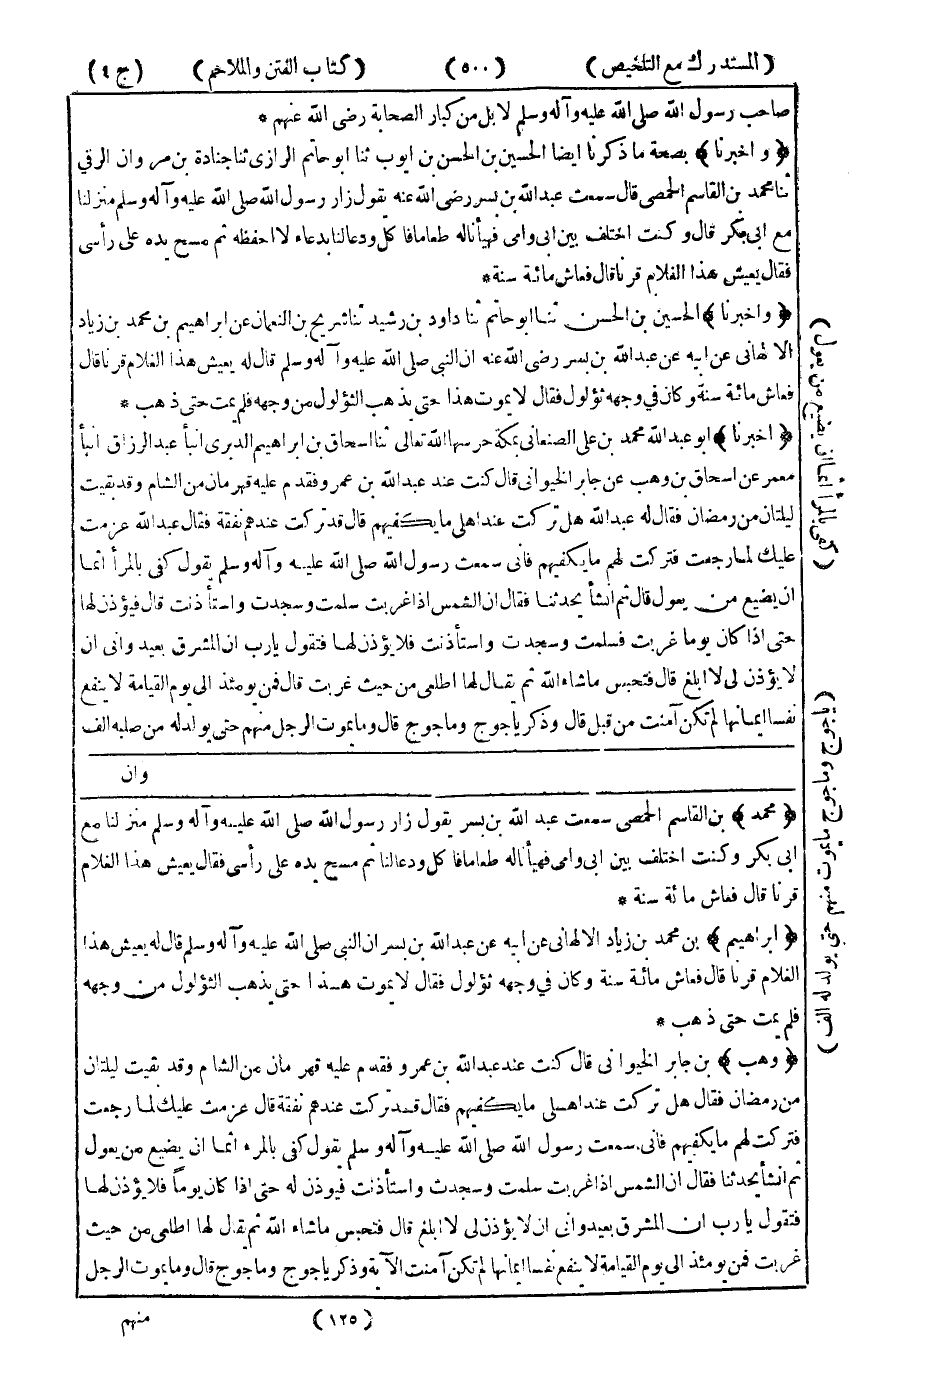 ( المستدرك مع التلخيص ) ( ٥٠٠ ) ( كتاب الفتن والملاحم ) ( ج ٤ )
صاحب رسول الله صلى الله عليه وآله وسلم لابل من كبار الصحابة رضى الله عنهم *
﴿ و اخبرنا ﴾ بصحة ما ذكرنا ايضا الحسين بن الحسن بن ايوب ثنا ابو حاتم الرازى ثنا جنادة بن مروان الرقي
ثنا محمد بن القاسم الحمصى قال سمعت عبدالله بن بسر رضى الله عنه يقول زار رسول الله صلى الله عليه وآله وسلم منزلنا
مع ابى بكر قال و كنت اختلف بين ابى وامى فهيأنا له طعاما فاكل ودعا لنا بدعاء لا احفظه ثم مسح يده على رأسى
فقال يعيش هذا الغلام قرنا قال فعاش مائة سنة *
﴿ واخبرنا ﴾ الحسين بن الحسن ثنا ابو حاتم ثنا داود بن رشيد ثنا شريح بن النعمان عن ابراهيم بن محمد بن زياد
الالهانى عن ابيه عن عبدالله بن بسر رضى الله عنه ان النبي صلى الله عليه وآله وسلم قال له يعيش هذا الغلام قرنا قال
فعاش مائة سنة وكان في وجهه ثؤلول فقال لا يموت هذا حتى يذهب الثؤلول من وجهه فلم يمت حتى ذهب *
﴿ اخبرنا ﴾ ابو عبدالله محمد بن على الصنعانى بمكة حرسها الله تعالى ثنا اسحاق بن ابراهيم الدبرى انبأ عبد الرزاق انبأ
معمر عن اسحاق بن وهب عن جابر الخيوانى قال كنت عند عبدالله بن عمرو فقدم عليه قهرمان من الشام وقد بقيت
ليلتان من رمضان فقال له عبدالله هل تركت عند اهلى ما يكفيهم قال قد تركت عندهم نفقة فقال عبدالله عزمت
عليك لما رجعت فتركت لهم ما يكفيهم فانى سمعت رسول الله صلى الله عليه وآله وسلم يقول كفى بالمرأ اثما
ان يضيع من يعول قال ثم انشأ يحدثنا فقال ان الشمس اذا غربت سلمت وسجدت واستأذنت قال فيؤذن لها
حتى اذا كان يوما غربت فسلمت وسجدت واستأذنت فلا يؤذن لها فتقول يارب ان المشرق بعيد وانى ان
لا يؤذن لى لا ابلغ قال فتحبس ماشاء الله ثم يقال لها اطلعى من حيث غربت قال فمن يومئذ الى يوم القيامة لا ينفع
نفسا ايمانها لم تكن آمنت من قبل قال وذكر ياجوج وماجوج قال وما يموت الرجل منهم حتى يولد له من صلبه الف
وان
﴿ محمد ﴾ بن القاسم الحمصى سمعت عبد الله بن بسر يقول زار رسول الله صلى الله عليه وآله وسلم منزلنا مع
ابى بكر وكنت اختلف بين ابى وامى فهيأنا له طعاما فاكل ودعا لنا ثم مسح يده على رأسى فقال يعيش هذا الغلام
قرنا قال فعاش مائة سنة *
﴿ ابراهيم ﴾ بن محمد بن زياد الالهانى عن ابيه عن عبدالله بن بسر ان النبي صلى الله عليه وآله وسلم قال له يعيش هذا
الغلام قرنا قال فعاش مائة سنة وكان في وجهه ثؤلول فقال لا يموت هذا حتى يذهب الثؤلول من وجهه
فلم يمت حتى ذهب *
﴿ وهب ﴾ بن جابر الخيوانى قال كنت عند عبدالله بن عمرو فقدم عليه قهرمان من الشام وقد بقيت ليلتان
من رمضان فقال هل تركت عند اهلى ما يكفيهم فقال قد تركت عندهم نفقة قال عزمت عليك لما رجعت
فتركت لهم ما يكفيهم فانى سمعت رسول الله صلى الله عليه وآله وسلم يقول كفى بالمرء اثما ان يضيع من يعول
ثم انشأ يحدثنا فقال ان الشمس اذا غربت سلمت وسجدت واستأذنت فيوذن له حتى اذا كان يوماً فلا يؤذن لها
فتقول يارب ان المشرق بعيد وانى ان لا يؤذن لى لا ابلغ قال فتحبس ماشاء الله ثم يقال لها اطلعى من حيث
غربت فمن يومئذ الى يوم القيامة لا ينفع نفسا ايمانها لم تكن آمنت الآية وذكر ياجوج وماجوج قال وما يموت الرجل
( ١٢٥ ) منهم
( كفى بالمرأ اثما ان يضيع من يعول )
ماجوج وما يموت
منهم حتى يولد له الف )